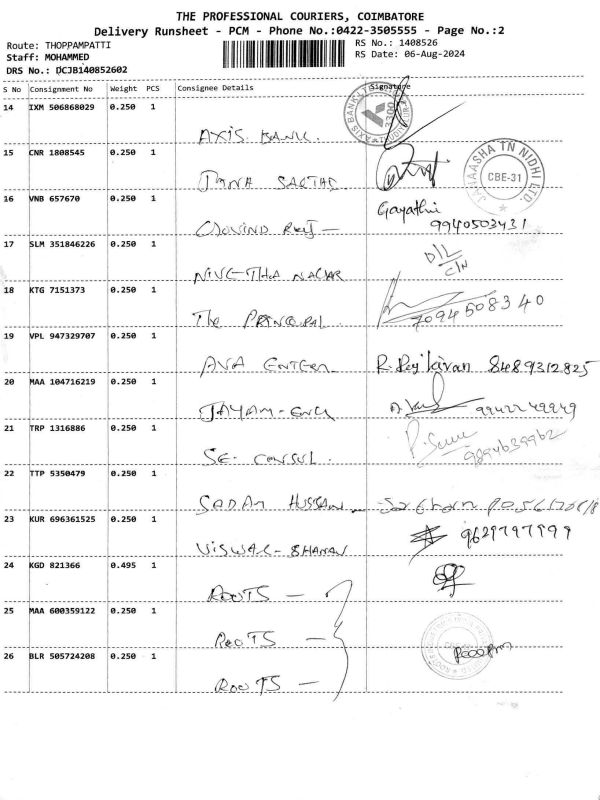 THE PROFESSIONAL COURIERS, COIMBATORE
Delivery Runsheet - PCM - Phone No.:0422-3505555 - Page No.:2
Route: THOPPAMPATTI
RS No.: 1408526
Staff: MOHAMMED
RS Date: 06-Aug-2024
DRS No.: DCJB140852602
S No Consignment No Weight PCS Consignee Details Signature
14 IXM 506868029 0.250 1
AXIS BANK.
15 CNR 1808545 0.250 1
JANAASHA TN NIDHI LTD.
CBE-31
16 VNB 657670 0.250 1
Gayathri
9940503431
GOVIND
17 SLM 351846226 0.250 1
D/L
NIVETHA NAGAR
18 KTG 7151373 0.250 1
The PRINCIPAL. 7094508340
19 VPL 947329707 0.250 1
AVA ENTERR R. Raj kiran 8489312825
20 MAA 104716219 0.250 1
JAYAM-ENG 9942249949
21 TRP 1316886 0.250 1
SE. CONSUL. 9894639962
22 TTP 5350479 0.250 1
SADAM HUSSAIN
23 KUR 696361525 0.250 1
9629797999
24 KGD 821366 0.495 1
ROOTS -
25 MAA 600359122 0.250 1
ROOTS -
26 BLR 505724208 0.250 1
ROOTS -